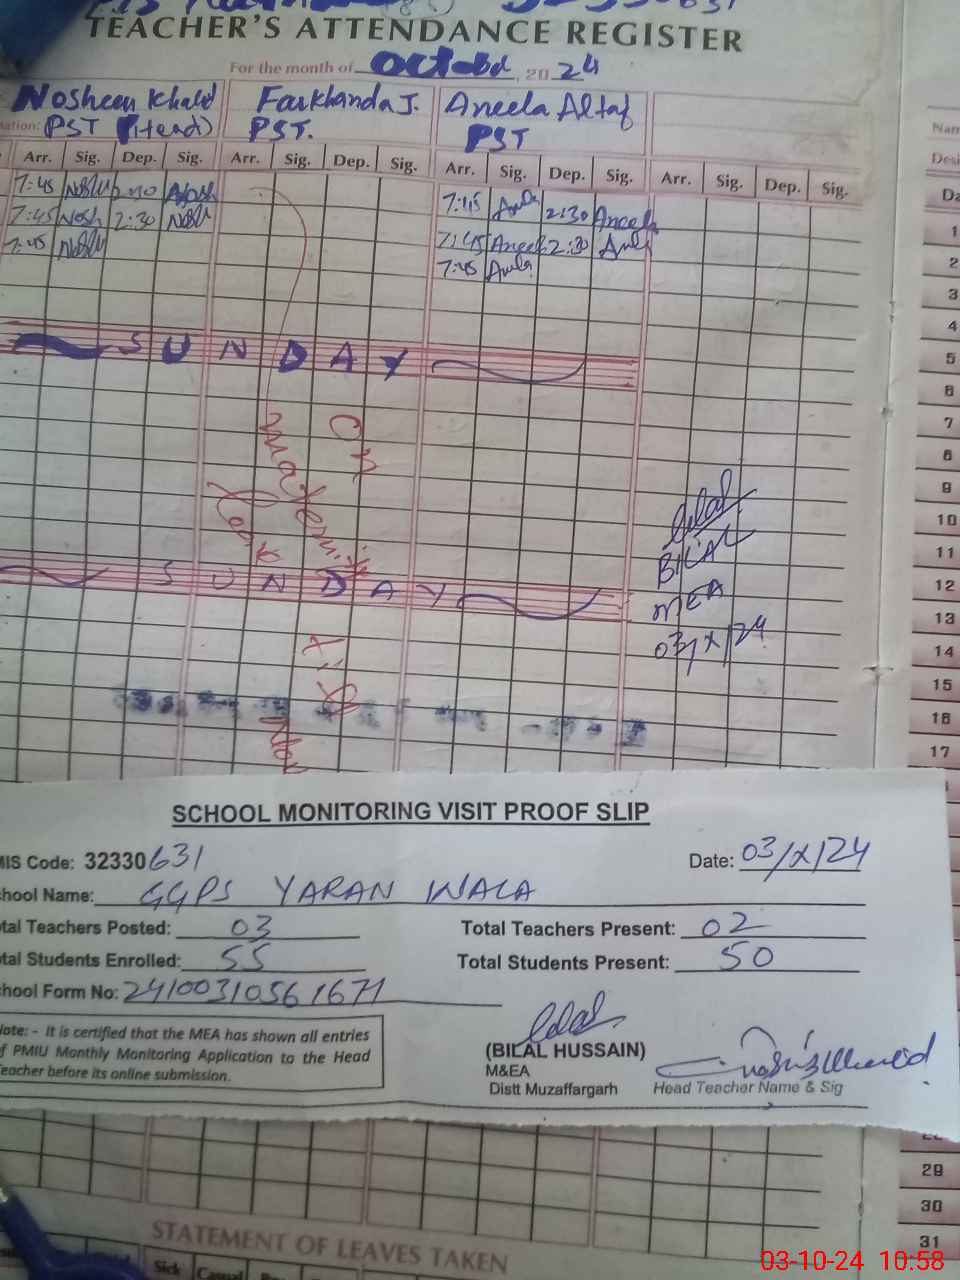 TEACHER'S ATTENDANCE REGISTER
For the month of October, 2024
Nosheen Khalid Farkhanda J. Aneela Altaf
PST (Head) PST. PST
Arr. Sig. Dep. Sig. Arr. Sig. Dep. Sig. Arr. Sig. Dep. Sig. Arr. Sig. Dep. Sig.
7:45 Nosh
7:45 Nosh 2:30 Nosh
7:45 Nosh
2:30 Aneela
7:45 Aneela 2:30
7:45
SUNDAY
On
Maternity
SUNDAY
Bilal
BILAL
MEA
03/X/24
1
2
3
4
5
6
7
8
9
10
11
12
13
14
15
16
17
SCHOOL MONITORING VISIT PROOF SLIP
MIS Code: 32330631 Date: 03/X/24
chool Name: GGPS YARAN WALA
tal Teachers Posted: 03 Total Teachers Present: 02
tal Students Enrolled: 55 Total Students Present: 50
chool Form No: 24100310561671
Note: - It is certified that the MEA has shown all entries
f PMIU Monthly Monitoring Application to the Head
eacher before its online submission.
(BILAL HUSSAIN)
M&EA
Distt Muzaffargarh
Head Teacher Name & Sig
29
30
31
STATEMENT OF LEAVES TAKEN
Sick Casual
03-10-24 10:58